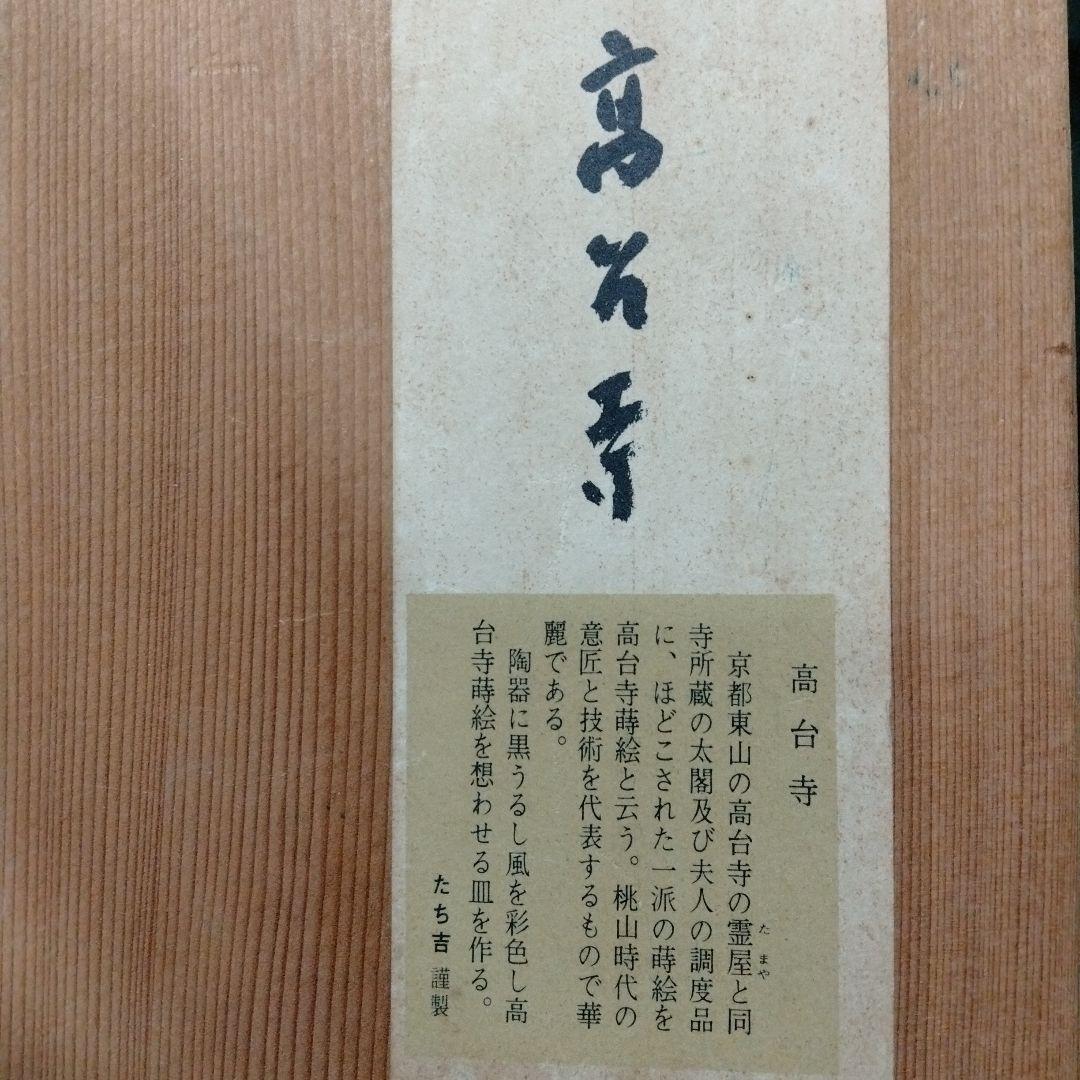 高台寺
高台寺
京都東山の高台寺の霊屋と同
たまや
寺所蔵の太閤及び夫人の調度品
に、ほどこされた一派の蒔絵を
高台寺蒔絵と云う。桃山時代の
意匠と技術を代表するもので華
麗である。
陶器に黒うるし風を彩色し高
台寺蒔絵を想わせる皿を作る。
たち吉 謹製